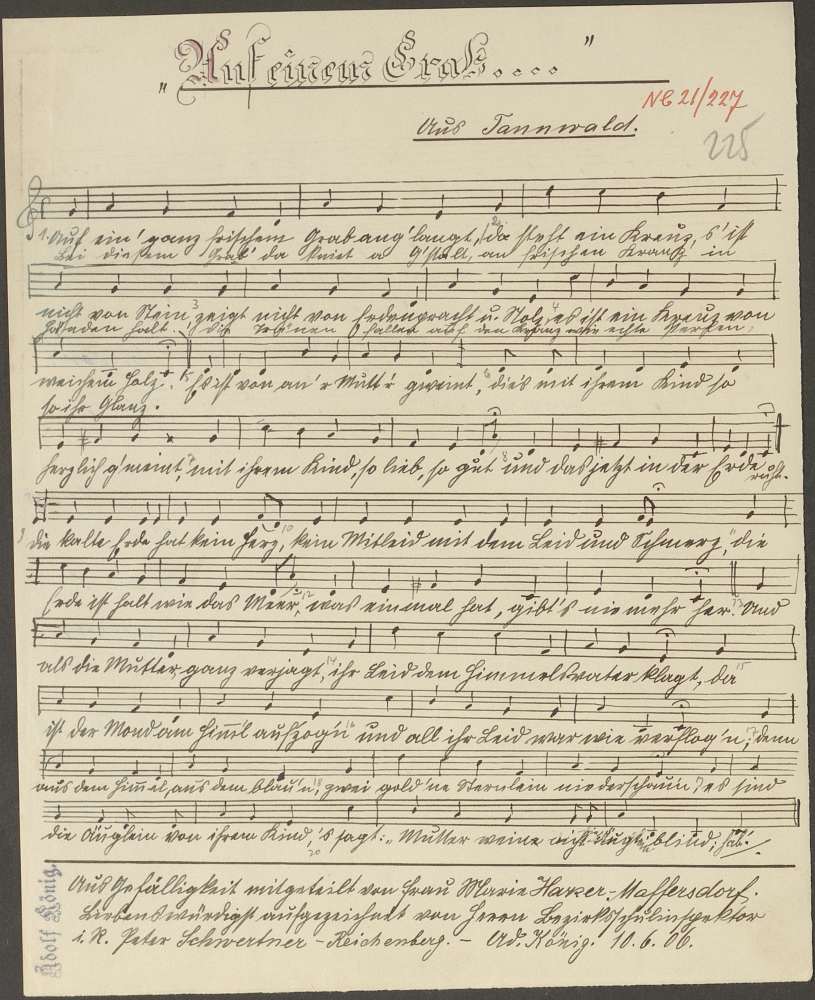 "Auf einem Grab...."
NC 21/227
Aus Tannwald.
225
1. Auf ein' ganz frischem Grab ang'langt, 2. da steht ein Kreuz, s' ist
Bei diesem Grab' da kniet a G'stalt, an frischen Kranz in
nicht von Stein 3 zeigt nicht von Erdenpracht u. Stolz, 4 es ist ein Kreuz von
Händen halt. die Tränen fallen auf den Kranz wie echte Perlen,
weichem Holz. 5 Es ist von an'r Mutt'r geweint, 6 die's mit ihrem Kind so
so ihr Glanz.
herzlich g'meint, 7 mit ihrem Kind, so lieb, so gut 8 und das jetzt in der Erde
ruht.
9 die kalte Erde hat kein Herz, 10 kein Mitleid mit dem Leid und Schmerz, 11 die
Erde ist halt wie das Meer, 12 was einmal hat, gibt's nie mehr her. 13 Und
als die Mutter, ganz verzagt, 14 ihr Leid dem Himmelsvater klagt, da 15
ist der Mond am Himm'l aufzog'n 16 und all ihr Leid war wie verflog'n, 17 denn
aus dem Himmel, aus dem blau'n, 18 zwei gold'ne Sternlein niederschau'n, 19 es sind
die Äuglein von ihrem Kind, 20 's sagt: „Mutter weine nicht blind,
Aus Gefälligkeit mitgeteilt von Frau Marie Haxer-Maffersdorf.
Liebenswürdigst aufgezeichnet von Herrn Bezirksschulinspektor
i. R. Peter Schwertner - Reichenberg. - Ad. König. 10.6.06.
Adolf König.